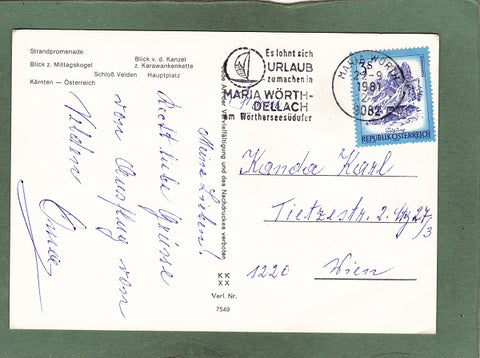 Strandpromenade
Blick v. d. Kanzel
Blick z. Mittagskogel
z. Karawankenkette
Schloß Velden
Hauptplatz
Kärnten — Österreich
Meine Lieben!
Recht liebe Grüße
von Ausflug von
Velden
Vervielfältigung und des Nachdruckes verboten
KK
XX
Verl. Nr.
7549
Es lohnt sich
URLAUB
zu machen in
MARIA WÖRTH-
DELLACH
am Wörtherseesüdufer
MARIA WÖRTH
1981
9082
REPUBLIK ÖSTERREICH
Kanda Karl
Tietzestr. 2
27/3
1220 Wien